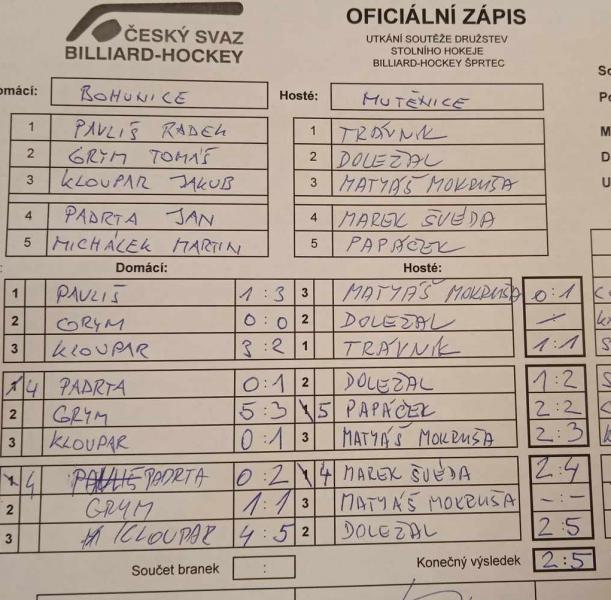 ČESKÝ SVAZ
BILLIARD-HOCKEY
OFICIÁLNÍ ZÁPIS
UTKÁNÍ SOUTĚŽE DRUŽSTEV
STOLNÍHO HOKEJE
BILLIARD-HOCKEY ŠPRTEC
omácí: BOHUNICE Hosté: MUTĚNICE
1 PAVLIŠ RADEK 1 TRÁVNIK
2 GRYM TOMÁŠ 2 DOLEŽAL
3 KLOUPAR JAKUB 3 MATYÁŠ MOKRUŠA
4 PADRTA JAN 4 MAREK ŠVÉDA
5 MICHÁLEK MARTIN 5 PAPÁČEK
Domácí: Hosté:
1 PAVLIŠ 1:3 3 MATYÁŠ MOKRUŠA 0:1
2 GRYM 0:0 2 DOLEŽAL –
3 KLOUPAR 3:2 1 TRÁVNIK 1:1
1 4 PADRTA 0:1 2 DOLEŽAL 1:2
2 GRYM 5:3 1 5 PAPÁČEK 2:2
3 KLOUPAR 0:1 3 MATYÁŠ MOKRUŠA 2:3
1 4 PADRTA 0:2 1 4 MAREK ŠVÉDA 2:4
2 GRYM 1:1 3 MATYÁŠ MOKRUŠA -:-
3 KLOUPAR 4:5 2 DOLEŽAL 2:5
Součet branek : Konečný výsledek 2:5